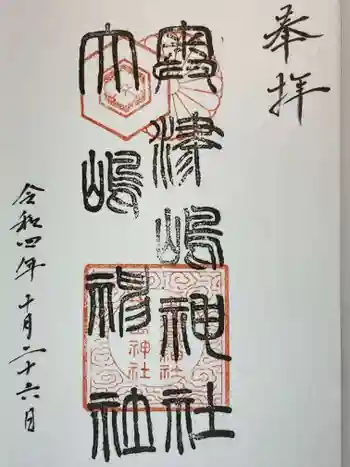 奉拝
奥津嶋神社
大嶋神社
令和四年 十月二十六日